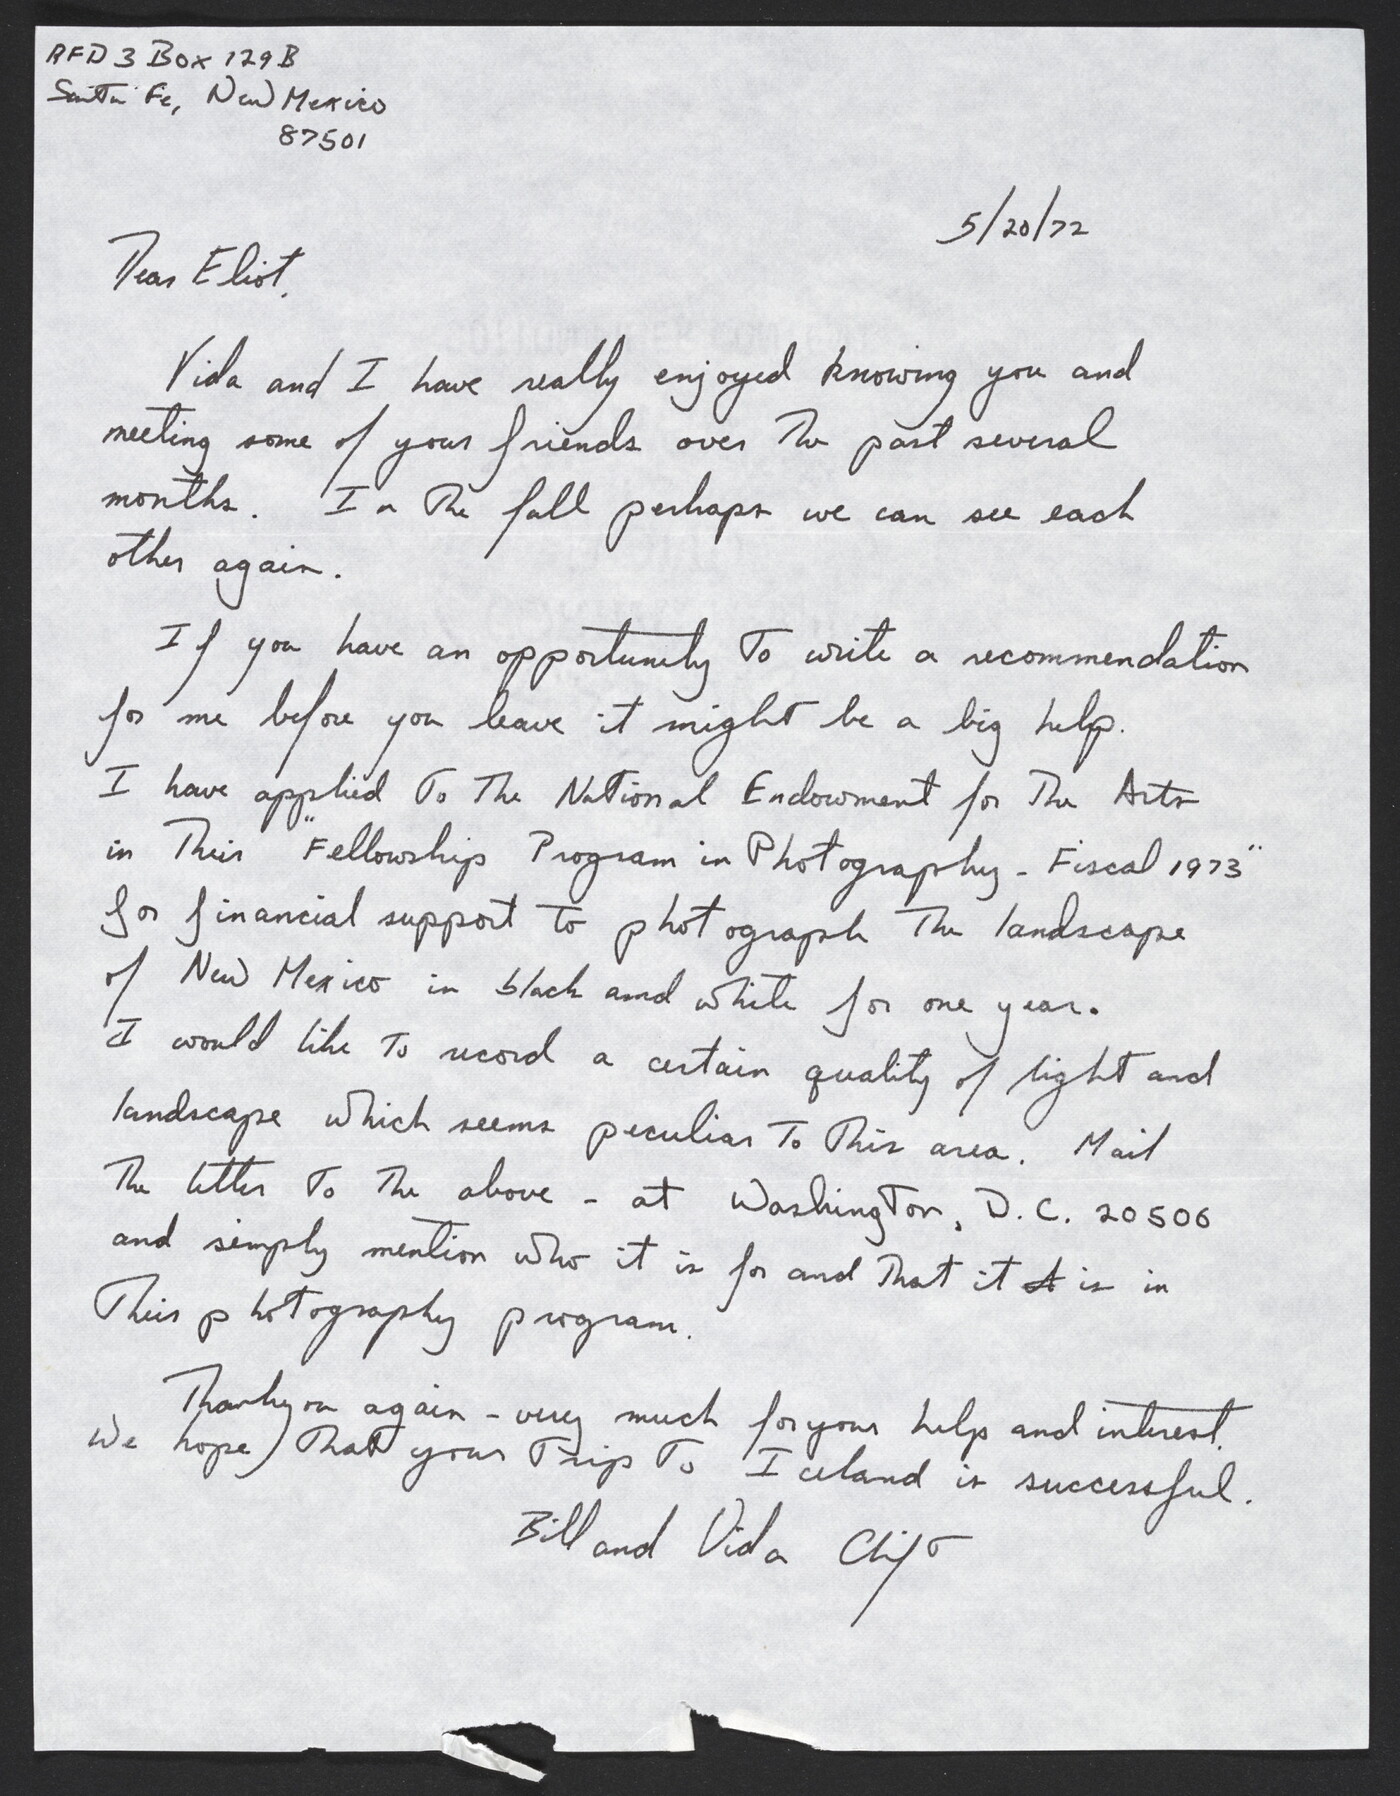 RFD 3 Box 129B
Santa Fe, New Mexico
87501
5/20/72
Dear Eliot,
Vida and I have really enjoyed knowing you and
meeting some of your friends over The past several
months. In The fall perhaps we can see each
other again.
If you have an opportunity To write a recommendation
for me before you leave it might be a big help.
I have applied To The National Endowment for The Arts
in Their "Fellowship Program in Photography - Fiscal 1973"
for financial support to photograph The landscape
of New Mexico in black and white for one year.
I would like To record a certain quality of light and
landscape which seems peculiar To This area. Mail
The letter To The above - at Washington, D.C. 20506
and simply mention who it is for and That it is in
Their photography program.
Thankyou again - very much for your help and interest.
We hope That your Trip To Iceland is successful.
Bill and Vida Clift